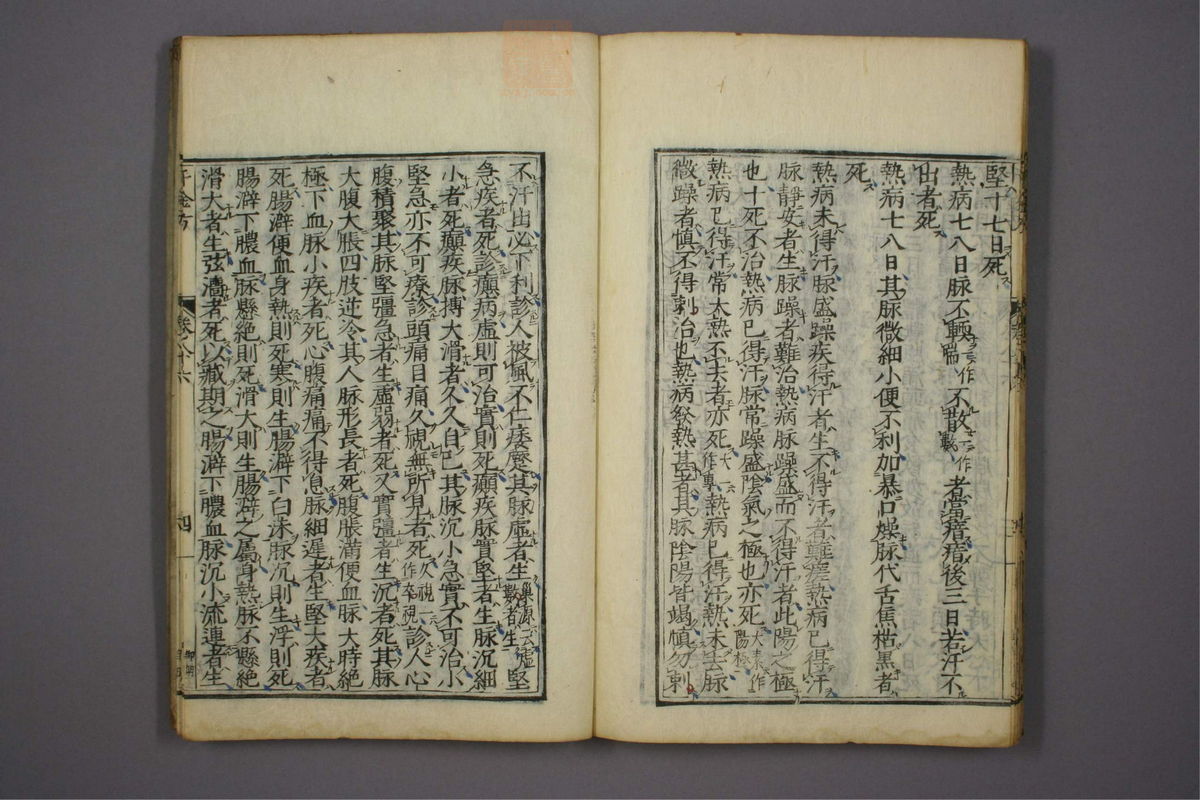 堅十七日死
熱病七八日脉不軟喘一作不散數一作者當瘖瘖後三日若汗不
出者死
熱病七八日其脉微細小便不利加暴口燥脉代舌焦枯黒者
死
熱病未得汗脉盛躁疾得汗者生不得汗者難瘥熱病已得汗
脉靜安者生脉躁者難治熱病脉躁盛而不得汗者此陽之極
也十死不治熱病已得汗脉常躁盛陰氣之極也亦死太素作陽極
熱病已得汗常大熱不去者亦死大一作專熱病已得汗熱未去脉
微躁者慎不得刺治也熱病發熱甚者其脉陰陽皆竭慎勿刺
不汗出必下利診人被風不仁痿蹷其脉虛者生巢源云虛數者生堅
急疾者死診癲病虛則可治實則死癲疾脉實堅者生脉沉細
小者死癲疾脉搏大滑者久久自已其脉沉小急實不可治小
堅急亦不可療診頭痛目痛久視無所見者死久視一作卒視診人心
腹積聚其脉堅彊急者生虛弱者死又實彊者生沉者死其脉
大腹大脹四肢逆冷其人脉形長者死腹脹滿便血脉大時絕
極下血脉小疾者死心腹痛痛不得息脉細遲者生堅大疾者
死腸澼便血身熱則死寒則生腸澼下白沫脉沉則生浮則死
腸澼下膿血脉懸絕則死滑大則生腸澼之屬身熱脉不懸絕
滑大者生弦濇者死以藏期之腸澼下膿血脉沉小流連者生
千金方
卷之八十六
四